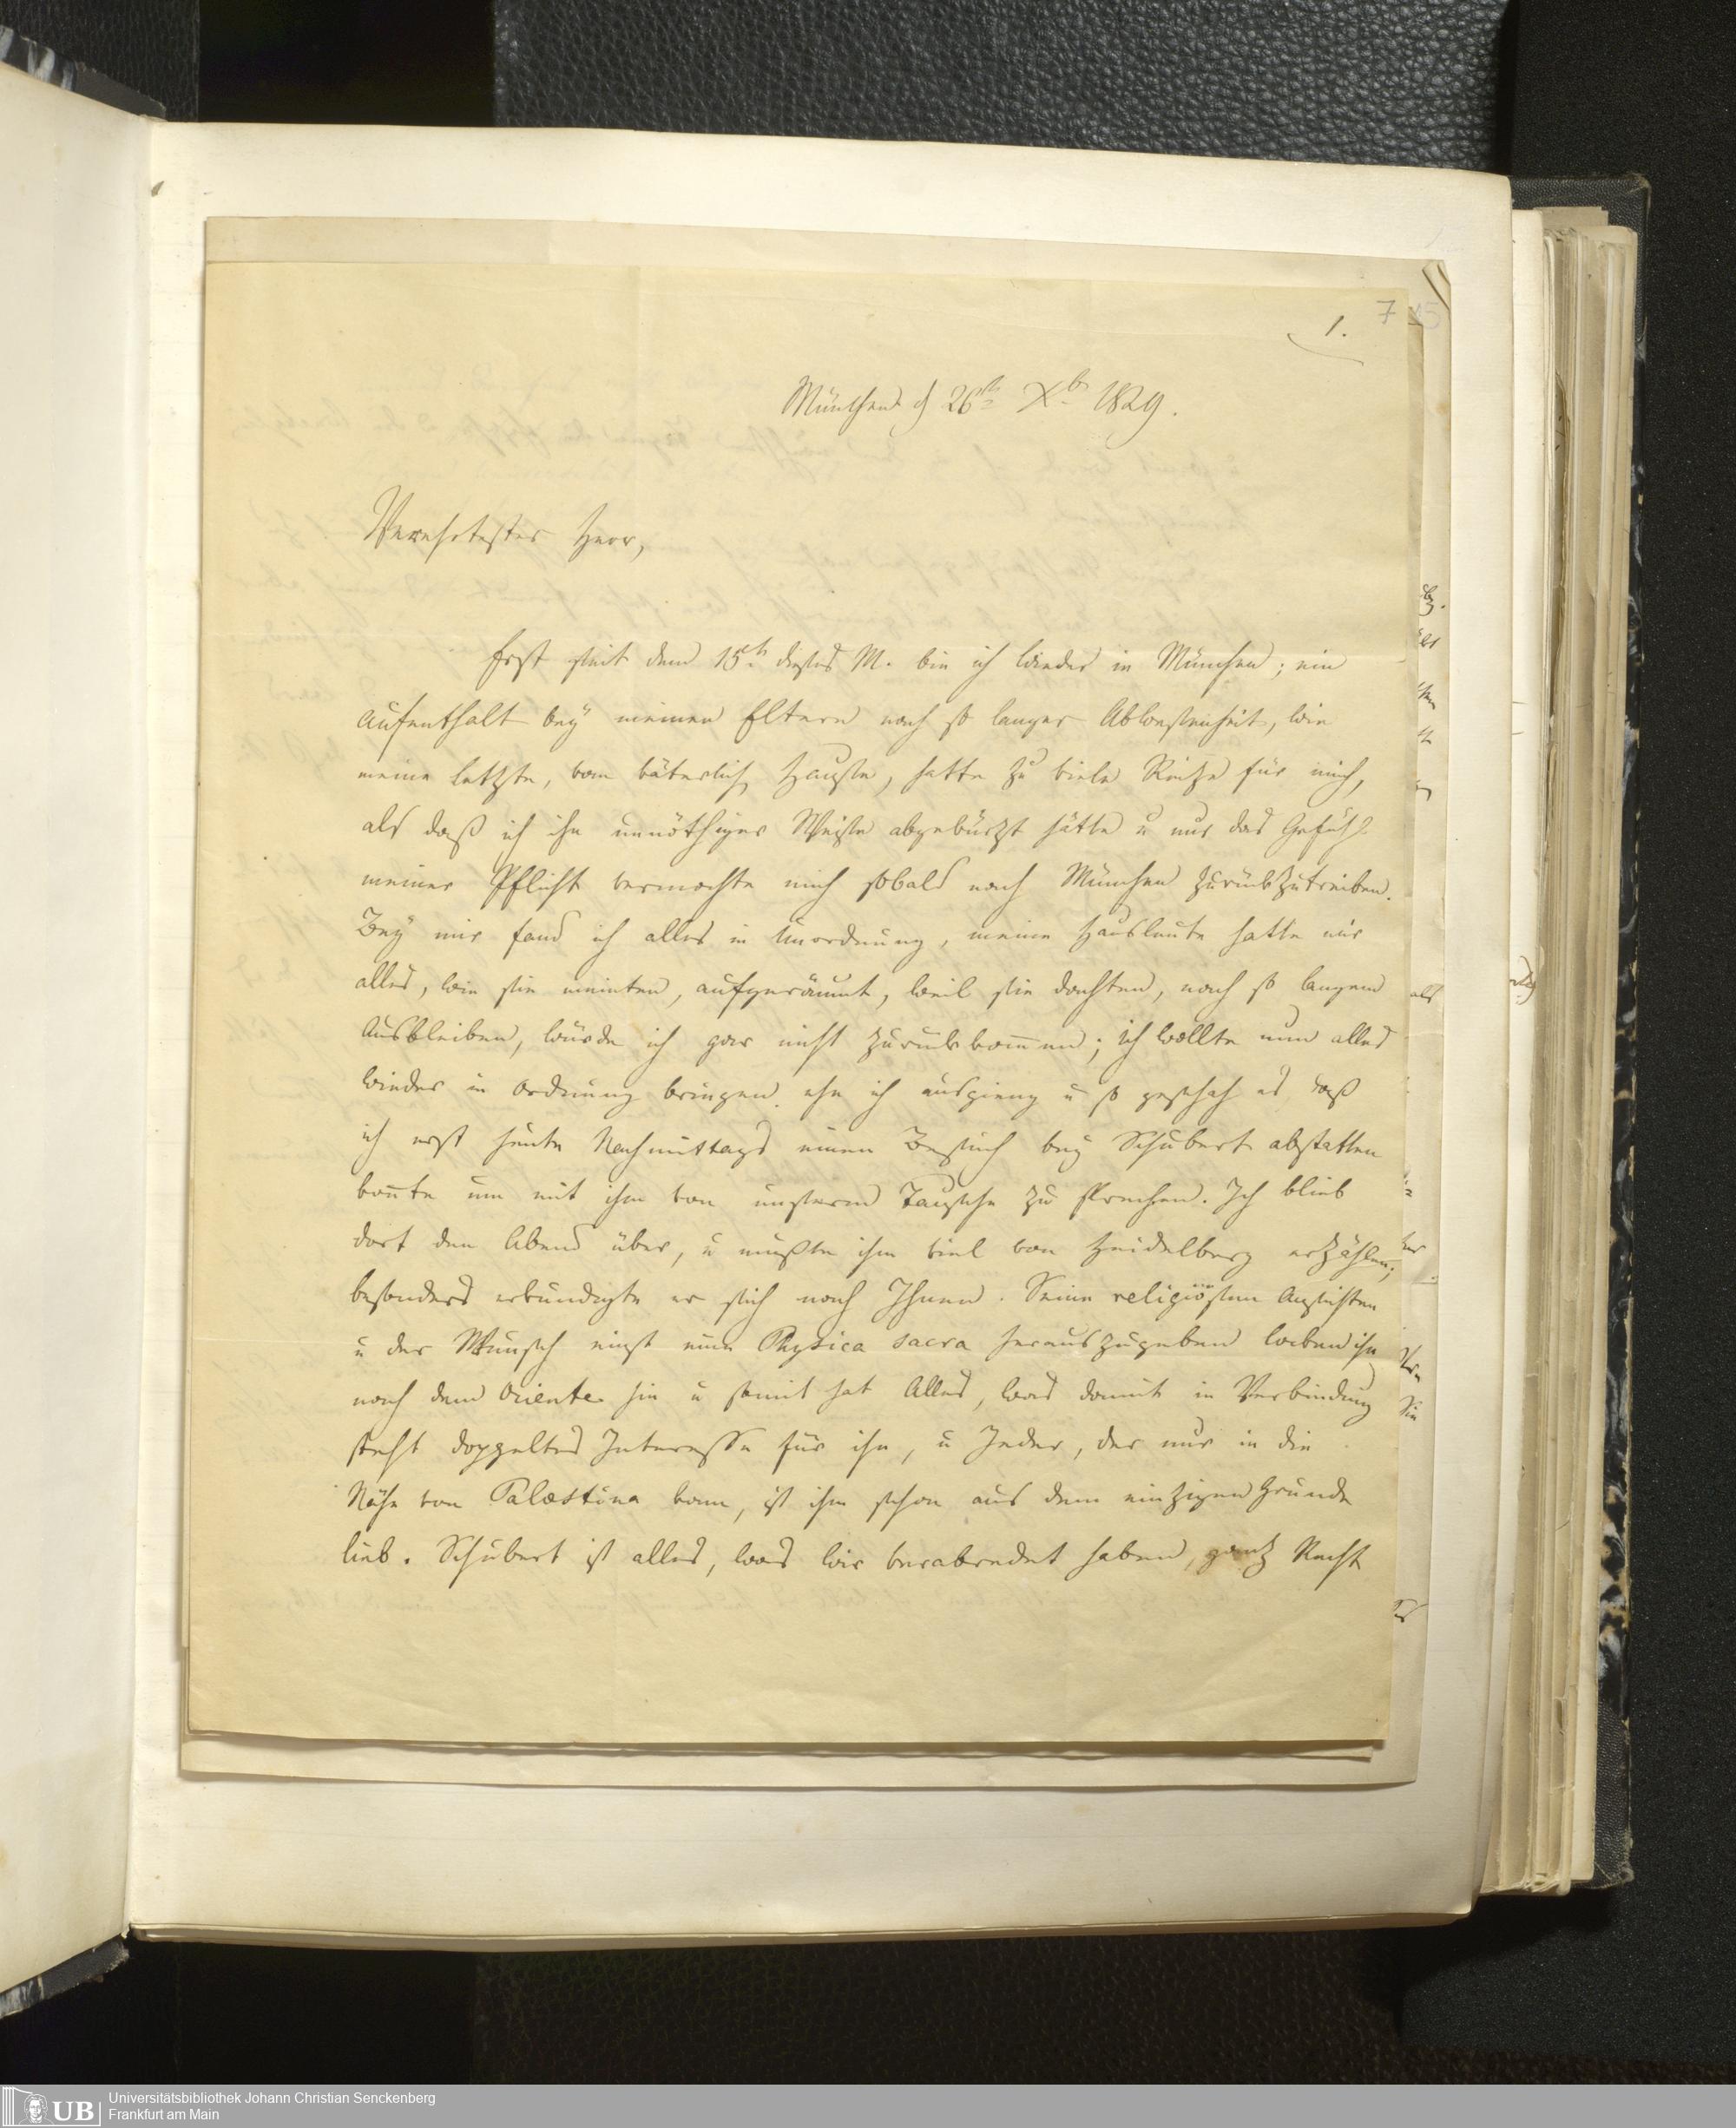 7 15
1.
München d 26t. Xb. 1829.
Verehrtester Herr,
Erst seit dem 15t. dieses M. bin ich wieder in München; ein
Aufenthalt beÿ meinen Eltern nach so langer Abwesenheit, wie
meine letzte, vom väterlich Hause, hatte zu viele Reitze für mich,
als daß ich ihn unnöthiger Weise abgekürzt hätte u nur das Gefühl
meiner Pflicht vermochte mich sobald nach München zurückzutreiben.
Beÿ mir fand ich alles in Unordnung, meine Hausleute hatte mir
alles, wie sie meinten, aufgeräumt, weil sie dachten, nach so langem
Ausbleiben, würde ich gar nicht zurückkom̄en; ich wollte nun alles
wieder in Ordnung bringen ehe ich ausgieng u so geschah es, daß
ich erst heute Nachmittags einen Besuch beÿ Schubert abstatten
kon̄te um mit ihm von unserem Tausche zu sprechen. Ich blieb
dort den Abend über, u mußte ihm viel von Heidelberg erzählen;
besonders erkundigte er sich nach Ihnen. Seine religiösen Ansichten
u der Wunsch einst eine Physica sacra herauszugeben locken ihn
nach dem Oriente hin u somit hat Alles, was damit in Verbindung
steht doppeltes Interesse für ihn, u Jeder, der nur in die
Nähe von Palæstina kam, ist ihm schon aus dem einzigen Grunde
lieb. Schubert ist alles, was wir verabredet haben, gantz Recht
als
UB
Universitätsbibliothek Johann Christian Senckenberg
Frankfurt am Main